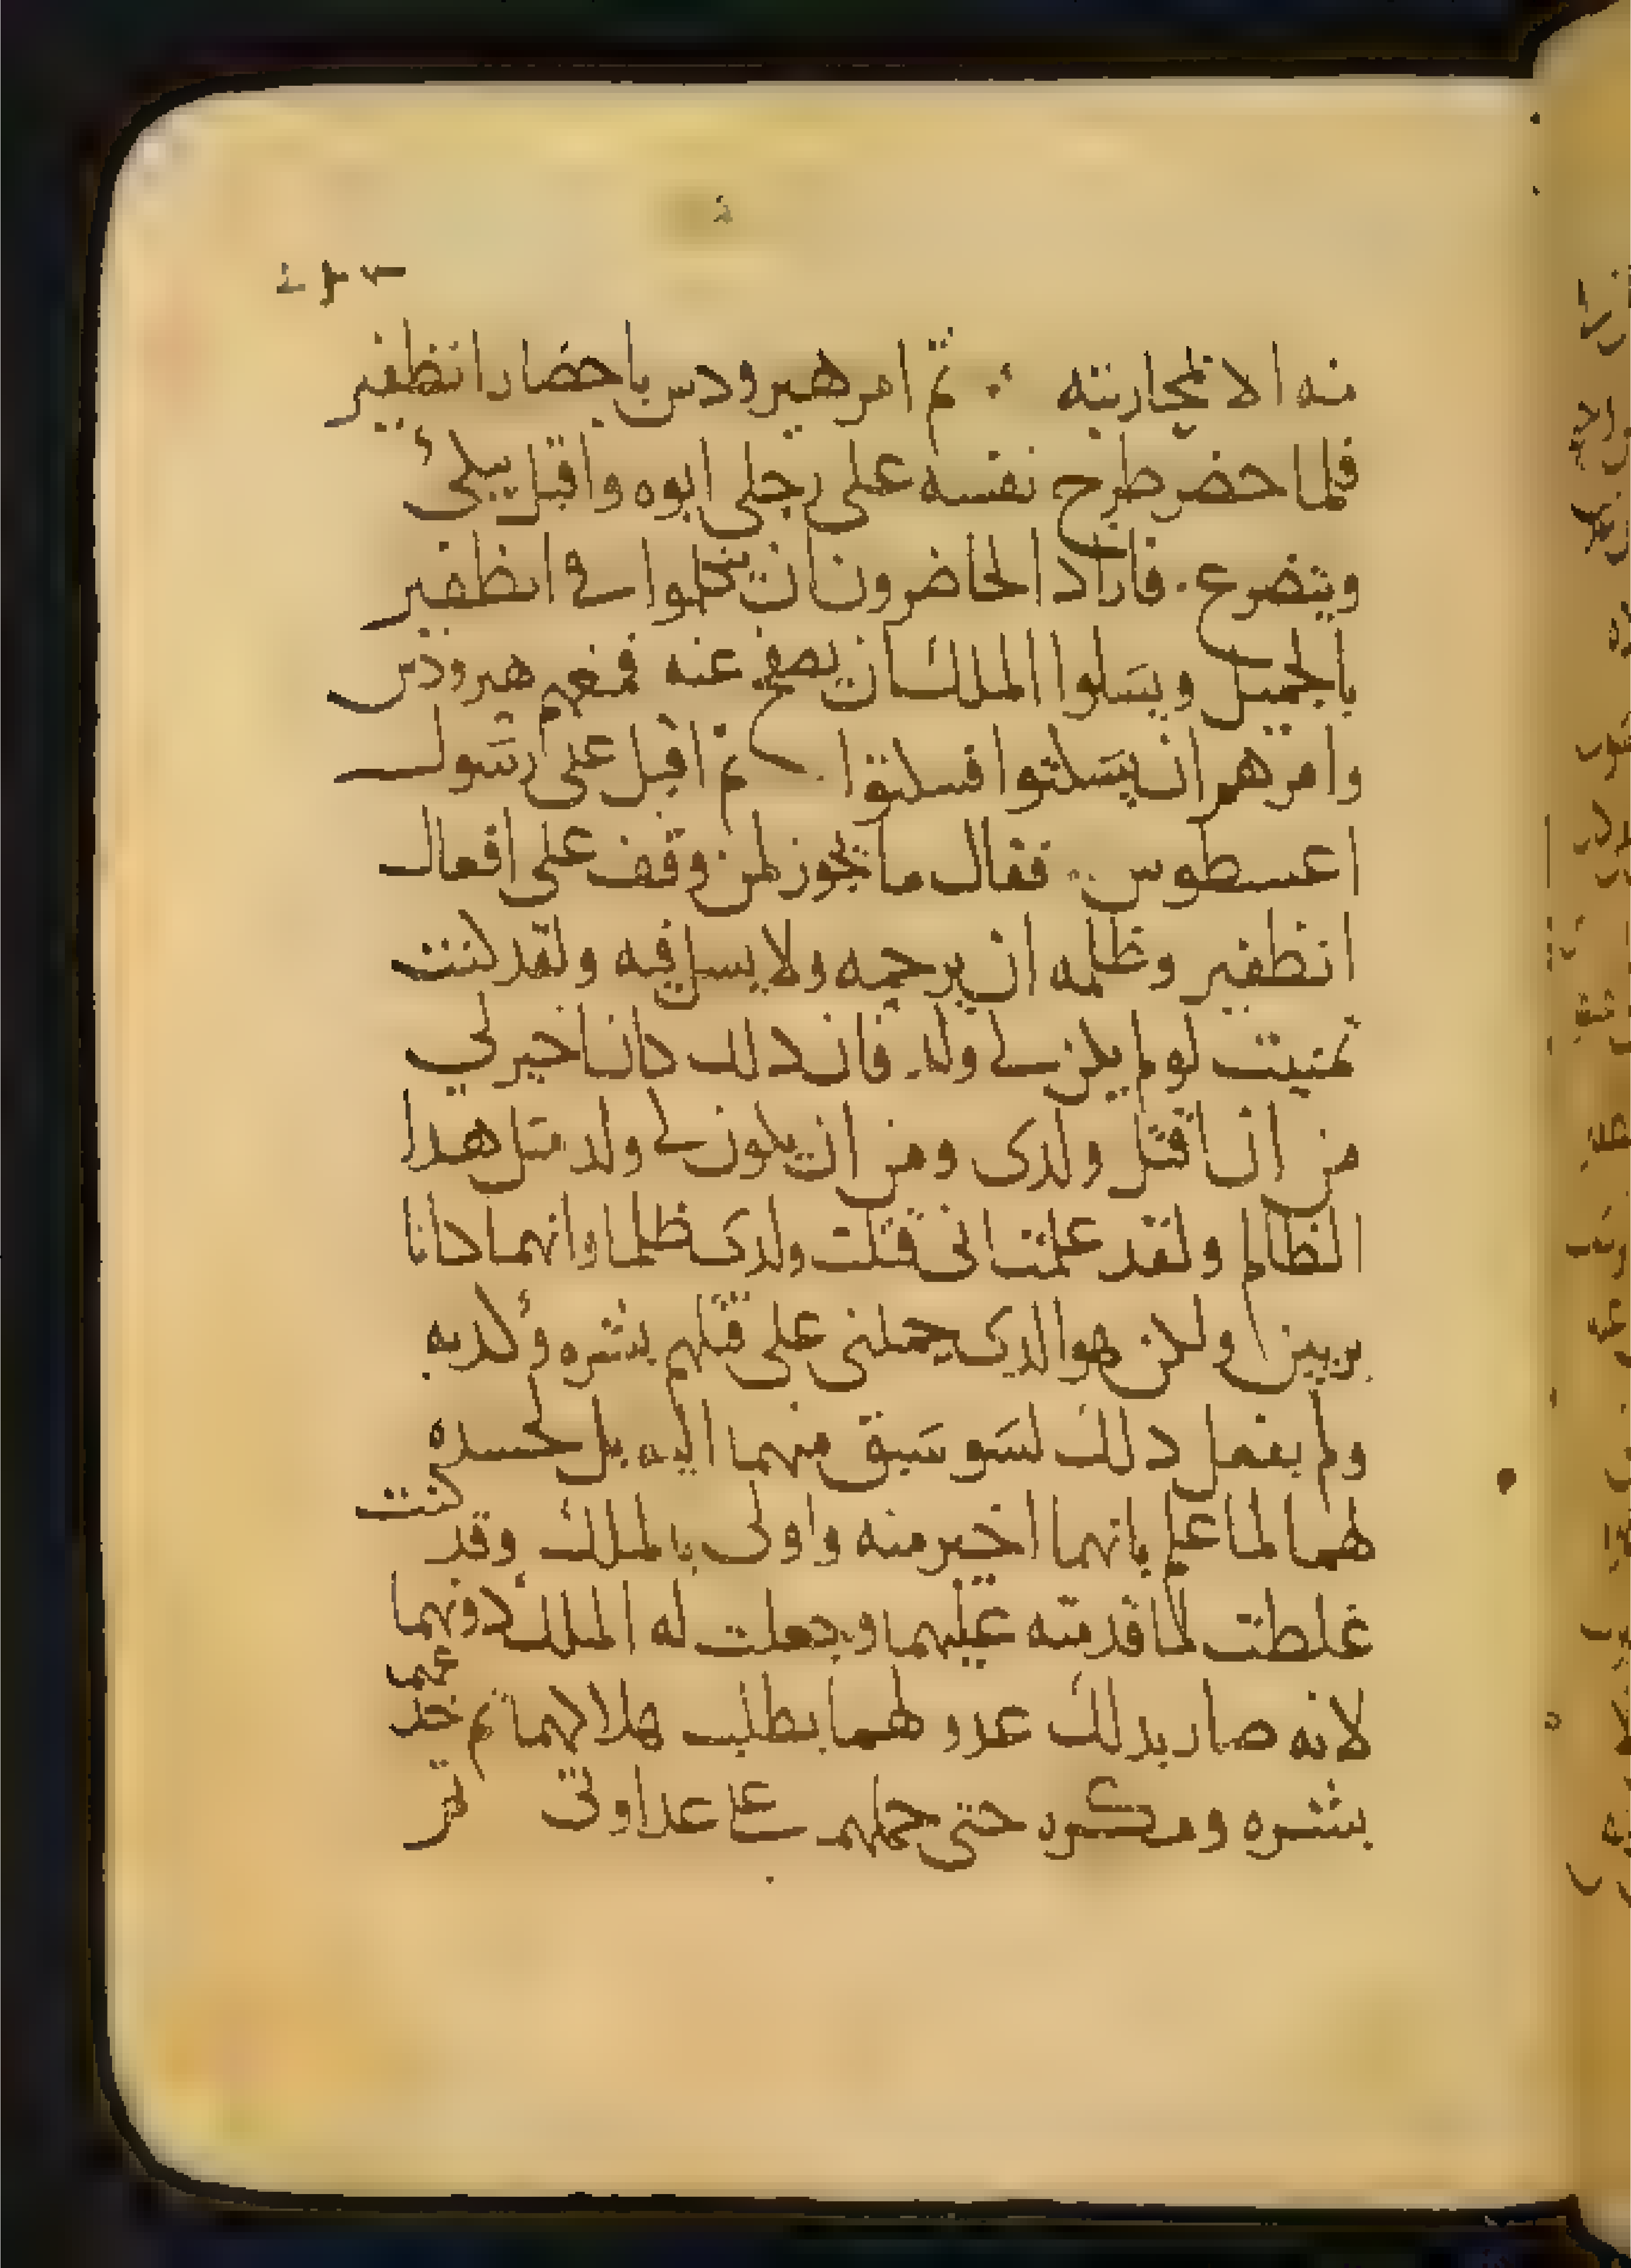 منه الا لمحاربته ثم امر هيرودس باحضار انظفير
فلما حضر طرح نفسه على رجلى ابوه واقبل يبكي
ويتضرع. فاراد الحاضرون ان يتكلموا في انظفير
بالجميل ويسلوا الملك ان يصفح عنه فمنعهم هيرودس
وامرهم ان يسكتوا فسكتوا ثم اقبل على رسول
اعسطوس فقال ما يجوز لمن وقف على افعال
انظفير وظلمه ان يرحمه ولا يسل فيه ولقد كنت
تمنيت لو لم يكن لي ولد فان دلك كان اخير لي
من ان اقتل ولدى ومن ان يكون لي ولد متل هدا
الظالم ولقد علمت انى قتلت ولدى ظلما وانهما كانا
بريين ولكن هو الدى حملنى على قتلهم بشره وكدبه
ولم يفعل دلك لسو سبق منهما اليه بل لحسده
هما لما علم بانهما اخير منه واولى بالملك وقد كنت
غلطت لما قدمته عليهما وجعلت له الملك دونهما
لانه صار بدلك عدو لهما بطلب هلاكهما ثم
بشره ومكره حتى حملهم على عداوتى